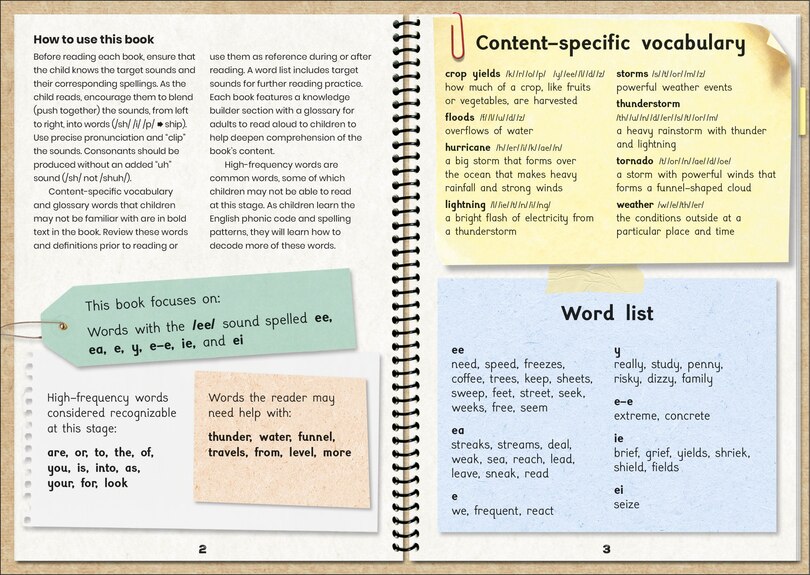 How to use this book
Before reading each book, ensure that
the child knows the target sounds and
their corresponding spellings. As the
child reads, encourage them to blend
(push together) the sounds, from left
to right, into words (/sh/ /i/ /p/ ➨ ship).
Use precise pronunciation and “clip”
the sounds. Consonants should be
produced without an added “uh”
sound (/sh/ not /shuh/).
Content-specific vocabulary
and glossary words that children
may not be familiar with are in bold
text in the book. Review these words
and definitions prior to reading or
use them as reference during or after
reading. A word list includes target
sounds for further reading practice.
Each book features a knowledge
builder section with a glossary for
adults to read aloud to children to
help deepen comprehension of the
book’s content.
High-frequency words are
common words, some of which
children may not be able to read
at this stage. As children learn the
English phonic code and spelling
patterns, they will learn how to
decode more of these words.
This book focuses on:
Words with the /ee/ sound spelled ee,
ea, e, y, e-e, ie, and ei
High-frequency words
considered recognizable
at this stage:
are, or, to, the, of,
you, is, into, as,
your, for, look
Words the reader may
need help with:
thunder, water, funnel,
travels, from, level, more
2
Content-specific vocabulary
crop yields /k/r/o/p/ /y/ee/l/d/z/
how much of a crop, like fruits
or vegetables, are harvested
floods /f/l/u/d/z/
overflows of water
hurricane /h/er/i/k/ae/n/
a big storm that forms over
the ocean that makes heavy
rainfall and strong winds
lightning /l/ie/t/n/i/ng/
a bright flash of electricity from
a thunderstorm
storms /s/t/or/m/z/
powerful weather events
thunderstorm
/th/u/n/d/er/s/t/or/m/
a heavy rainstorm with thunder
and lightning
tornado /t/or/n/ae/d/oe/
a storm with powerful winds that
forms a funnel-shaped cloud
weather /w/e/th/er/
the conditions outside at a
particular place and time
Word list
ee
need, speed, freezes,
coffee, trees, keep, sheets,
sweep, feet, street, seek,
weeks, free, seem
ea
streaks, streams, deal,
weak, sea, reach, lead,
leave, sneak, read
e
we, frequent, react
y
really, study, penny,
risky, dizzy, family
e-e
extreme, concrete
ie
brief, grief, yields, shriek,
shield, fields
ei
seize
3